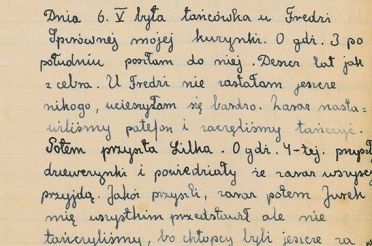 Dnia 6. V była tańcówka u Fredzi
Spirównej mojej kuzynki. O gdz. 3 po
południu poszłam do niej. Deszcz lał jak
z cebra. U Fredzi nie zastałam jeszcze
nikogo, ucieszyłam się bardzo. Zaraz nasta=
wiliśmy patefon i zaczęliśmy tańczyć.
Potem przyszła Lilka. O gdz. 4-tej. przyszł
dziewczynki i powiedziały że zaraz wszyscy
przyjdą. Jakoś przyszli, zaraz potem Jurek
mię wszystkim przedstawił ale nie
tańczyliśmy, bo chłopcy byli jeszcze za